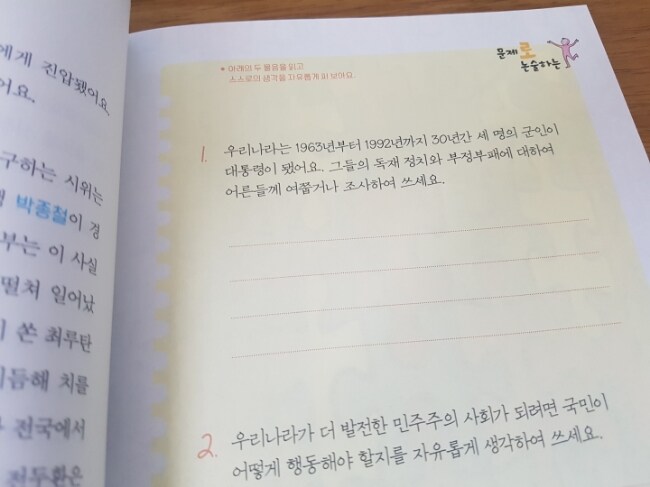 에게 진압됐어요.
어요.
구하는 시위는
박종철이 경
부는 이 사실
떨쳐 일어났
이 쏜 최루탄
리듬해 치를
전국에서
전두환은
문제로
논술하는
* 아래의 두 물음을 읽고
스스로의 생각을 자유롭게 써 보아요.
1. 우리나라는 1963년부터 1992년까지 30년간 세 명의 군인이
대통령이 됐어요. 그들의 독재 정치와 부정부패에 대하여
어른들께 여쭙거나 조사하여 쓰세요.
2. 우리나라가 더 발전한 민주주의 사회가 되려면 국민이
어떻게 행동해야 할지를 자유롭게 생각하여 쓰세요.